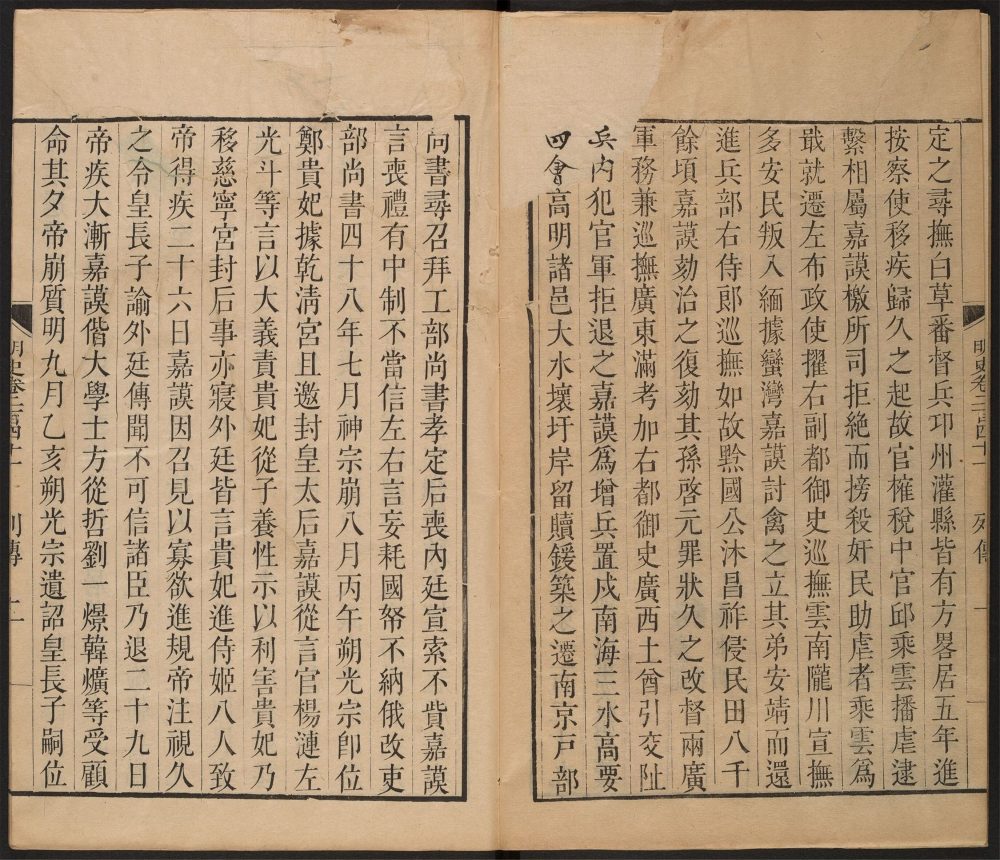 定之尋撫白草番督兵邛州灌縣皆有方畧居五年進
按察使移疾歸久之起故官榷稅中官邱乘雲播虐逮
繫相屬嘉謨檄所司拒絶而搒殺奸民助虐者乘雲爲
戢就遷左布政使擢右副都御史巡撫雲南隴川宣撫
多安民叛入緬據蠻灣嘉謨討禽之立其弟安靖而還
進兵部右侍郎巡撫如故黔國公沐昌祚侵民田八千
餘頃嘉謨劾治之復劾其孫啓元罪狀久之改督兩廣
軍務兼巡撫廣東滿考加右都御史廣西土酋引交阯
兵內犯官軍拒退之嘉謨爲增兵置戍南海三水高要
四會高明諸邑大水壞圩岸留贖鍰築之遷南京戸部
明史卷二百四十一
列傳
一
尚書尋召拜工部尚書孝定后喪內廷宣索不貲嘉謨
言喪禮有中制不當信左右言妄耗國帑不納俄改吏
部尚書四十八年七月神宗崩八月丙午朔光宗卽位
鄭貴妃據乾淸宮且邀封皇太后嘉謨從言官楊漣左
光斗等言以大義責貴妃從子養性示以利害貴妃乃
移慈寧宮封后事亦寢外廷皆言貴妃進侍姬八人致
帝得疾二十六日嘉謨因召見以寡欲進規帝注視久
之令皇長子諭外廷傳聞不可信諸臣乃退二十九日
帝疾大漸嘉謨偕大學士方從哲劉一燝韓爌等受顧
命其夕帝崩質明九月乙亥朔光宗遺詔皇長子嗣位
明史卷二百四十一
列傳
二